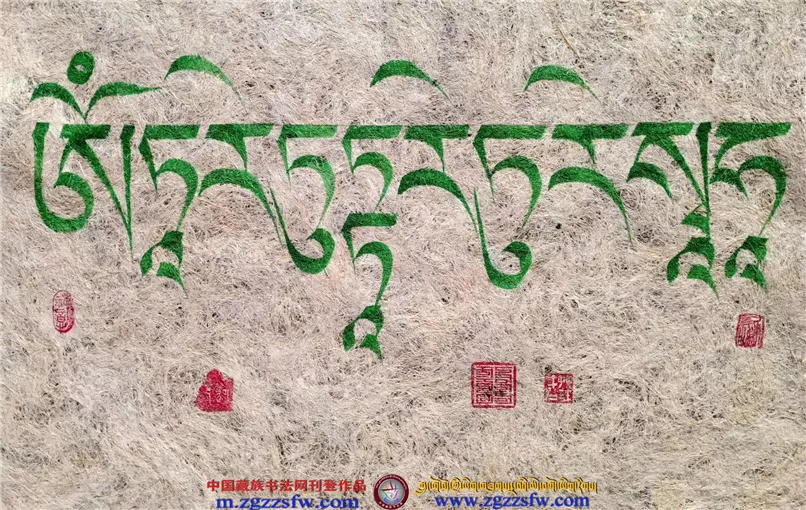 ཨོཾཏཱརེཏུཏྟཱརེཏུརེསྭཱཧཱ
中国藏族书法网刊登作品
m.zgzzsfw.com
www.zgzzsfw.com